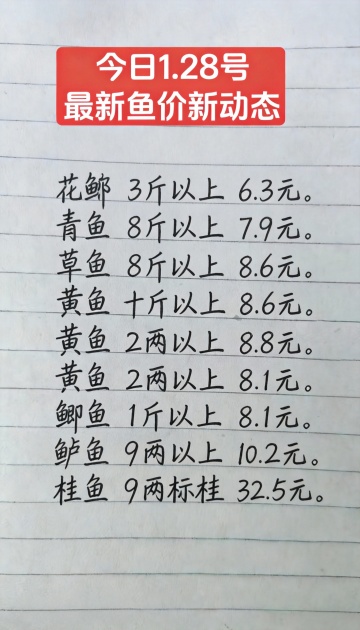 今日1.28号
最新鱼价新动态
花鲫 3斤以上 6.3元。
青鱼 8斤以上 7.9元。
草鱼 8斤以上 8.6元。
黄鱼 十斤以上 8.6元。
黄鱼 2两以上 8.8元。
黄鱼 2两以上 8.1元。
鲫鱼 1斤以上 8.1元。
鲈鱼 9两以上 10.2元。
桂鱼 9两标桂 32.5元。